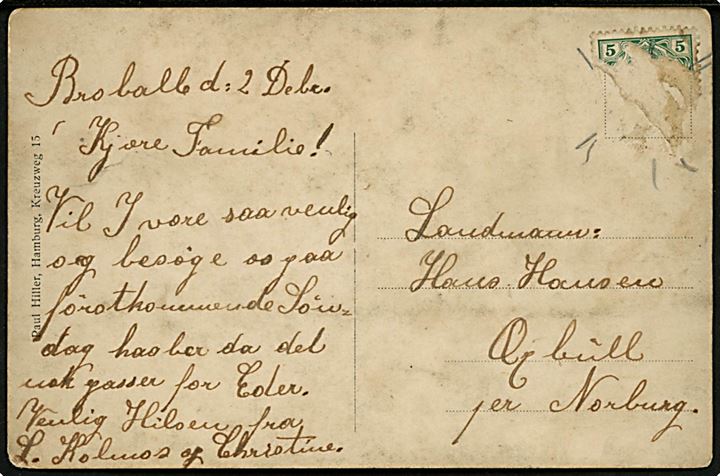 Broballe d: 2 Debr.
Kjære Familie!
Vil I være saa venlig
og besøge os paa
førstkommende Søn-
dag haaber da det
nok passer for Eder.
Venlig Hilsen fra
L. Kolmos og Christine.
Landmann:
Hans Hansen
büll
per Norburg.
Paul Hiller, Hamburg, Kreuzweg 15
5 5